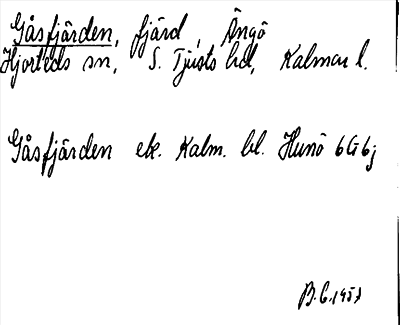 Gåsfjärden, fjärd, Ängö
Hjorteds sn, S. Tjusts hd, Kalmar l.
Gåsfjärden ek. Kalm. bl. Hunö 6G6j
B.C. 1957